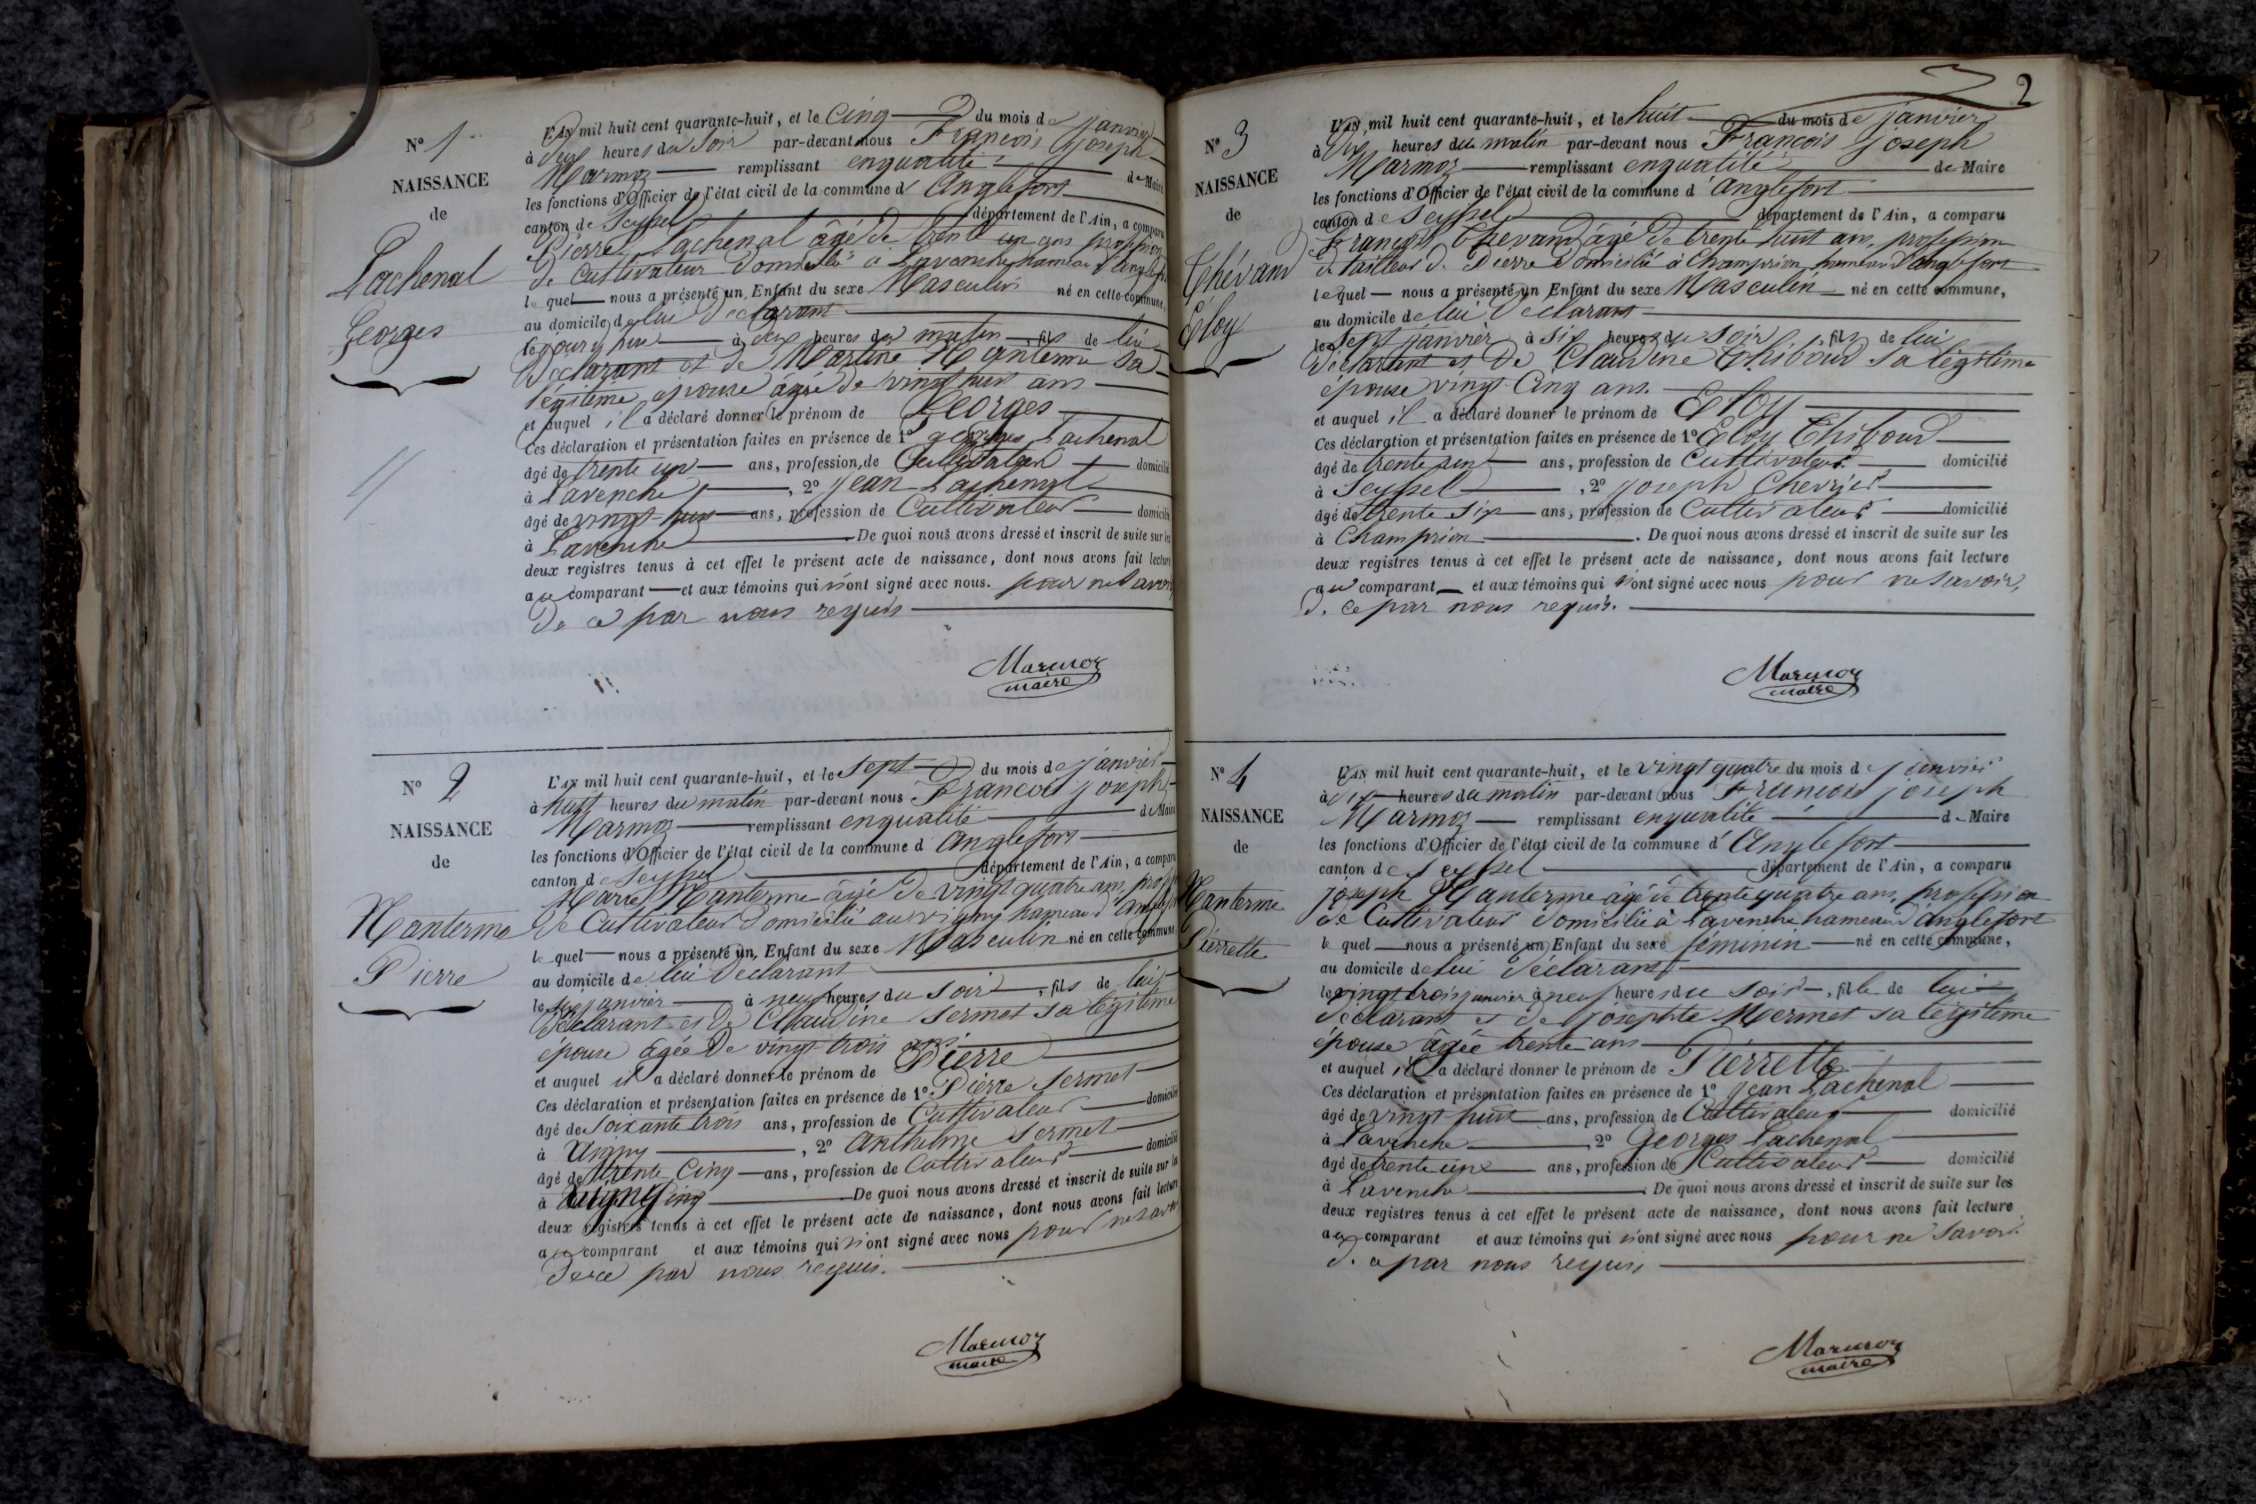 Nº 1
NAISSANCE
de
Lachenal
Georges
L'AN mil huit cent quarante-huit, et le Cinq du mois de janvier
à deux heures du Soir par-devant nous François joseph
Marmoz remplissant enqualité de Maire
les fonctions d'Officier de l'état civil de la commune d'Anglefort
canton de Seyssel département de l'Ain, a comparu
Pierre Lachenal âgé de trente un ans profession
de Cultivateur domicilié a Lavanche hameau d'anglefort
lequel nous a présenté un Enfant du sexe Masculin né en cette commune,
au domicile de lui Déclarant
le jourd'hui à heures du matin, fils de lui
Déclarant et de Marline Manterme sa
légitime épouse âgée de vingt huit ans
et auquel il a déclaré donner le prénom de Georges
Ces déclaration et présentation faites en présence de 1º georges Lachenal
âgé de trente un ans, profession de Cultivateur domicilié
à Lavenche, 2º jean Lachenal
âgé de vingt-huit ans, profession de Cultivateur domicilié
à Lavenche De quoi nous avons dressé et inscrit de suite sur les
deux registres tenus à cet effet le présent acte de naissance, dont nous avons fait lecture
au comparant et aux témoins qui n'ont signé avec nous. pour ne savoir
De ce par nous requis
Marmoz
maire
Nº 2
NAISSANCE
de
Manterme
Pierre
L'AN mil huit cent quarante-huit, et le Sept du mois de janvier
à huit heures du matin par-devant nous François joseph
Marmoz remplissant enqualité de Maire
les fonctions d'Officier de l'état civil de la commune d Anglefort
canton de Seyssel département de l'Ain, a comparu
Marie Manterme âgé de vingt quatre ans, prof
de Cultivateur domicilié au vigny hameau d'anglefort
lequel nous a présenté un Enfant du sexe Masculin né en cette commune
au domicile de lui Déclarant
le six janvier à neuf heures du soir, fils de lui
Déclarant et de Claudine Sermet sa légitime
épouse âgée De vingt trois ans
et auquel il a déclaré donner le prénom de Pierre
Ces déclaration et présentation faites en présence de 1º Pierre Sermet
âgé de Soixante trois ans, profession de Cultivateur domicilié
à Vigny, 2º Anthelme Sermet
âgé de trente Cinq ans, profession de Cultivateur domicilié
à De quoi nous avons dressé et inscrit de suite sur les
deux registres tenus à cet effet le présent acte de naissance, dont nous avons fait lecture
au comparant et aux témoins qui n'ont signé avec nous pour ne savoir
de ce par nous requis.
Marmoz
maire
2
Nº 3
NAISSANCE
de
Thévand
Éloy
L'AN mil huit cent quarante-huit, et le huit du mois de janvier
à Dix heures du matin par-devant nous François joseph
Marmoz remplissant enqualité de Maire
les fonctions d'Officier de l'état civil de la commune d'Anglefort
canton de Seyssel département de l'Ain, a comparu
François Thevand âgé de trente huit ans, profession
de tailleur de Pierre domicilié à Champrion hameau d'anglefort
lequel nous a présenté un Enfant du sexe Masculin né en cette commune,
au domicile de lui Déclarant
le Sept janvier à six heures du soir, fils de lui
Déclarant et De Claudine Thiboud sa légitime
épouse vingt-Cinq ans.
et auquel il a déclaré donner le prénom de Eloy
Ces déclaration et présentation faites en présence de 1º Eloy Thiboud
âgé de trente un ans, profession de Cultivateur domicilié
à Seyssel, 2º joseph Chevrier
âgé de trente six ans, profession de Cultivateur domicilié
à Champrion. De quoi nous avons dressé et inscrit de suite sur les
deux registres tenus à cet effet le présent acte de naissance, dont nous avons fait lecture
au comparant et aux témoins qui n'ont signé avec nous pour ne savoir,
de ce par nous requis.
Marmoz
maire
Nº 4
NAISSANCE
de
Manterme
Pierrette
L'AN mil huit cent quarante-huit, et le vingt quatre du mois de janvier
à dix heures du matin par-devant nous François joseph
Marmoz remplissant enqualité de Maire
les fonctions d'Officier de l'état civil de la commune d'Anglefort
canton de Seyssel département de l'Ain, a comparu
joseph Manterme âgé de trente quatre ans, profession
de Cultivateur domicilié à Lavenche hameau d'anglefort
lequel nous a présenté un Enfant du sexe féminin né en cette commune,
au domicile de lui Déclarant
le vingt trois janvier à neuf heures du soir, fille de lui
Déclarant et de josephte Mermet sa légitime
épouse âgée trente ans
et auquel il a déclaré donner le prénom de Pierrette
Ces déclaration et présentation faites en présence de 1º jean Lachenal
âgé de vingt huit ans, profession de Cultivateur domicilié
à Lavenche, 2º Georges Lachenal
âgé de trente un ans, profession de Cultivateur domicilié
à Lavenche. De quoi nous avons dressé et inscrit de suite sur les
deux registres tenus à cet effet le présent acte de naissance, dont nous avons fait lecture
au comparant et aux témoins qui n'ont signé avec nous pour ne savoir
de ce par nous requis
Marmoz
maire